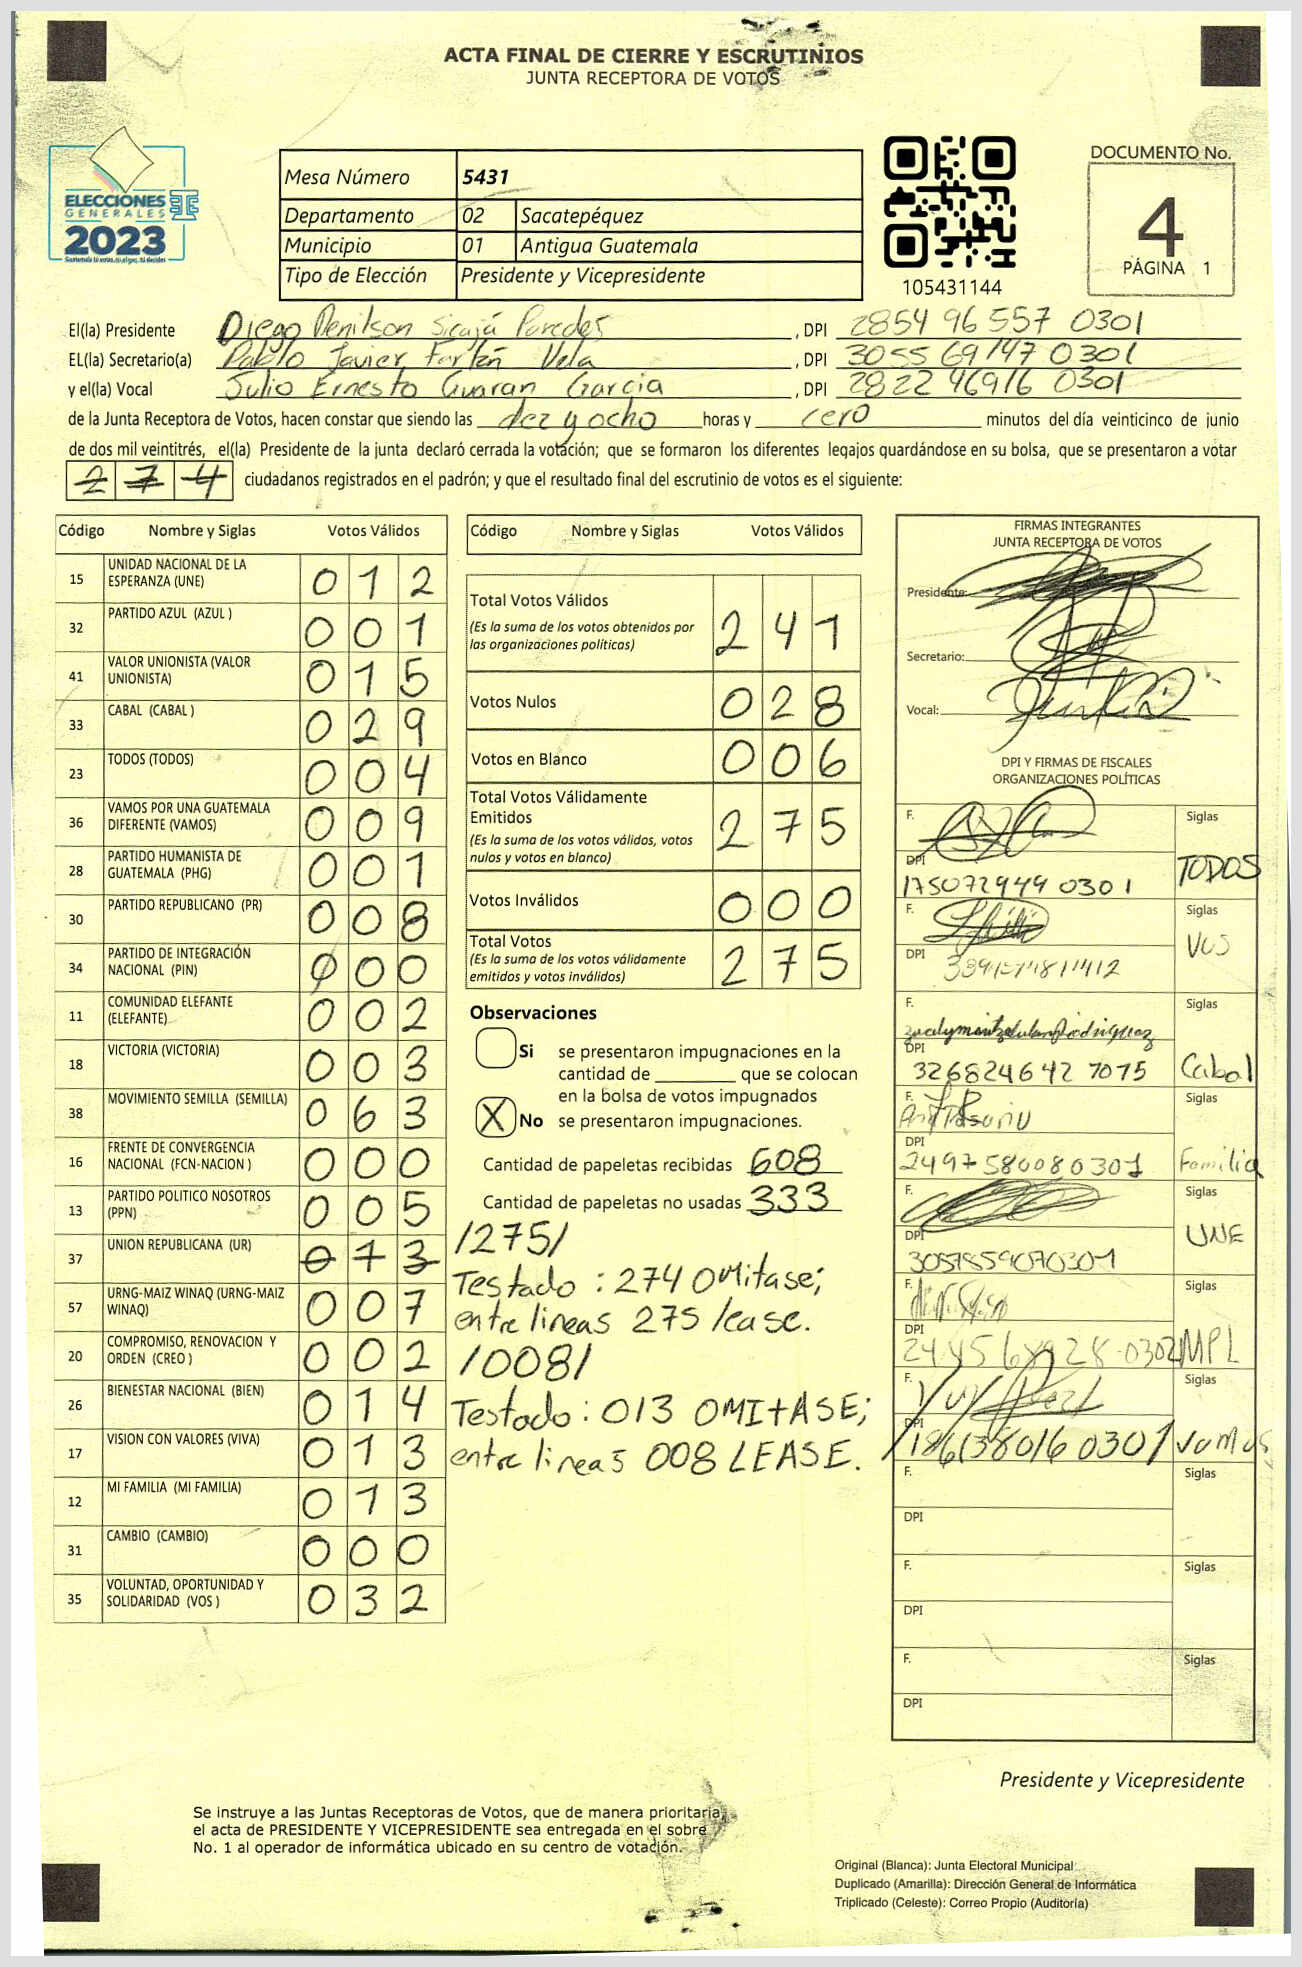 ACTA FINAL DE CIERRE Y ESCRUTINIOS
JUNTA RECEPTORA DE VOTOS
ELECCIONES
GENERALES
2023
Mesa Número 5431
Departamento 02 Sacatepéquez
Municipio 01 Antigua Guatemala
Tipo de Elección Presidente y Vicepresidente
105431144
DOCUMENTO No.
4
PÁGINA 1
El(la) Presidente Diego Denilson Sicajá Paredes, DPI 2854 96557 0301
EL(la) Secretario(a) Pablo Javier Farfán Vela, DPI 3055 69147 0301
y el(la) Vocal Julio Ernesto Guaran García, DPI 2822 46916 0301
de la Junta Receptora de Votos, hacen constar que siendo las diez y ocho horas y cero minutos del día veinticinco de junio
de dos mil veintitrés, el(la) Presidente de la junta declaró cerrada la votación; que se formaron los diferentes legajos quardándose en su bolsa, que se presentaron a votar
274 ciudadanos registrados en el padrón; y que el resultado final del escrutinio de votos es el siguiente:
Código Nombre y Siglas Votos Válidos
15 UNIDAD NACIONAL DE LA ESPERANZA (UNE) 012
32 PARTIDO AZUL (AZUL ) 001
41 VALOR UNIONISTA (VALOR UNIONISTA) 015
33 CABAL (CABAL ) 029
23 TODOS (TODOS) 004
36 VAMOS POR UNA GUATEMALA DIFERENTE (VAMOS) 009
28 PARTIDO HUMANISTA DE GUATEMALA (PHG) 001
30 PARTIDO REPUBLICANO (PR) 008
34 PARTIDO DE INTEGRACIÓN NACIONAL (PIN) 000
11 COMUNIDAD ELEFANTE (ELEFANTE) 002
18 VICTORIA (VICTORIA) 003
38 MOVIMIENTO SEMILLA (SEMILLA) 063
16 FRENTE DE CONVERGENCIA NACIONAL (FCN-NACION ) 000
13 PARTIDO POLITICO NOSOTROS (PPN) 005
37 UNION REPUBLICANA (UR) 013
57 URNG-MAIZ WINAQ (URNG-MAIZ WINAQ) 007
20 COMPROMISO, RENOVACION Y ORDEN (CREO ) 002
26 BIENESTAR NACIONAL (BIEN) 014
17 VISION CON VALORES (VIVA) 013
12 MI FAMILIA (MI FAMILIA) 013
31 CAMBIO (CAMBIO) 000
35 VOLUNTAD, OPORTUNIDAD Y SOLIDARIDAD (VOS ) 032
Código Nombre y Siglas Votos Válidos
Total Votos Válidos 241
(Es la suma de los votos obtenidos por
las organizaciones políticas)
Votos Nulos 028
Votos en Blanco 006
Total Votos Válidamente
Emitidos 275
(Es la suma de los votos válidos, votos
nulos y votos en blanco)
Votos Inválidos 000
Total Votos 275
(Es la suma de los votos válidamente
emitidos y votos inválidos)
Observaciones
Si se presentaron impugnaciones en la
cantidad de ________ que se colocan
en la bolsa de votos impugnados
X No se presentaron impugnaciones.
Cantidad de papeletas recibidas 608
Cantidad de papeletas no usadas 333
/275/
Testado : 274 OMitase;
entre lineas 275 lease.
/008/
Testado : 013 OMITASE;
entre lineas 008 LEASE.
FIRMAS INTEGRANTES
JUNTA RECEPTORA DE VOTOS
Presidente:
Secretario:
Vocal:
DPI Y FIRMAS DE FISCALES
ORGANIZACIONES POLÍTICAS
F. Siglas
DPI 175072949 0301 TODOS
F. Siglas
DPI VOS
F. Siglas
DPI 326824642 7075 Cabal
F. Siglas
DPI 2497580080301 Familia
F. Siglas
DPI 3057859070301 UNE
F. Siglas
DPI MPL
F. Siglas
DPI 186138016 0301 vamos
F. Siglas
DPI
F. Siglas
DPI
F. Siglas
DPI
Presidente y Vicepresidente
Se instruye a las Juntas Receptoras de Votos, que de manera prioritaria,
el acta de PRESIDENTE Y VICEPRESIDENTE sea entregada en el sobre
No. 1 al operador de informática ubicado en su centro de votación.
Original (Blanca): Junta Electoral Municipal
Duplicado (Amarilla): Dirección General de Informática
Triplicado (Celeste): Correo Propio (Auditoría)